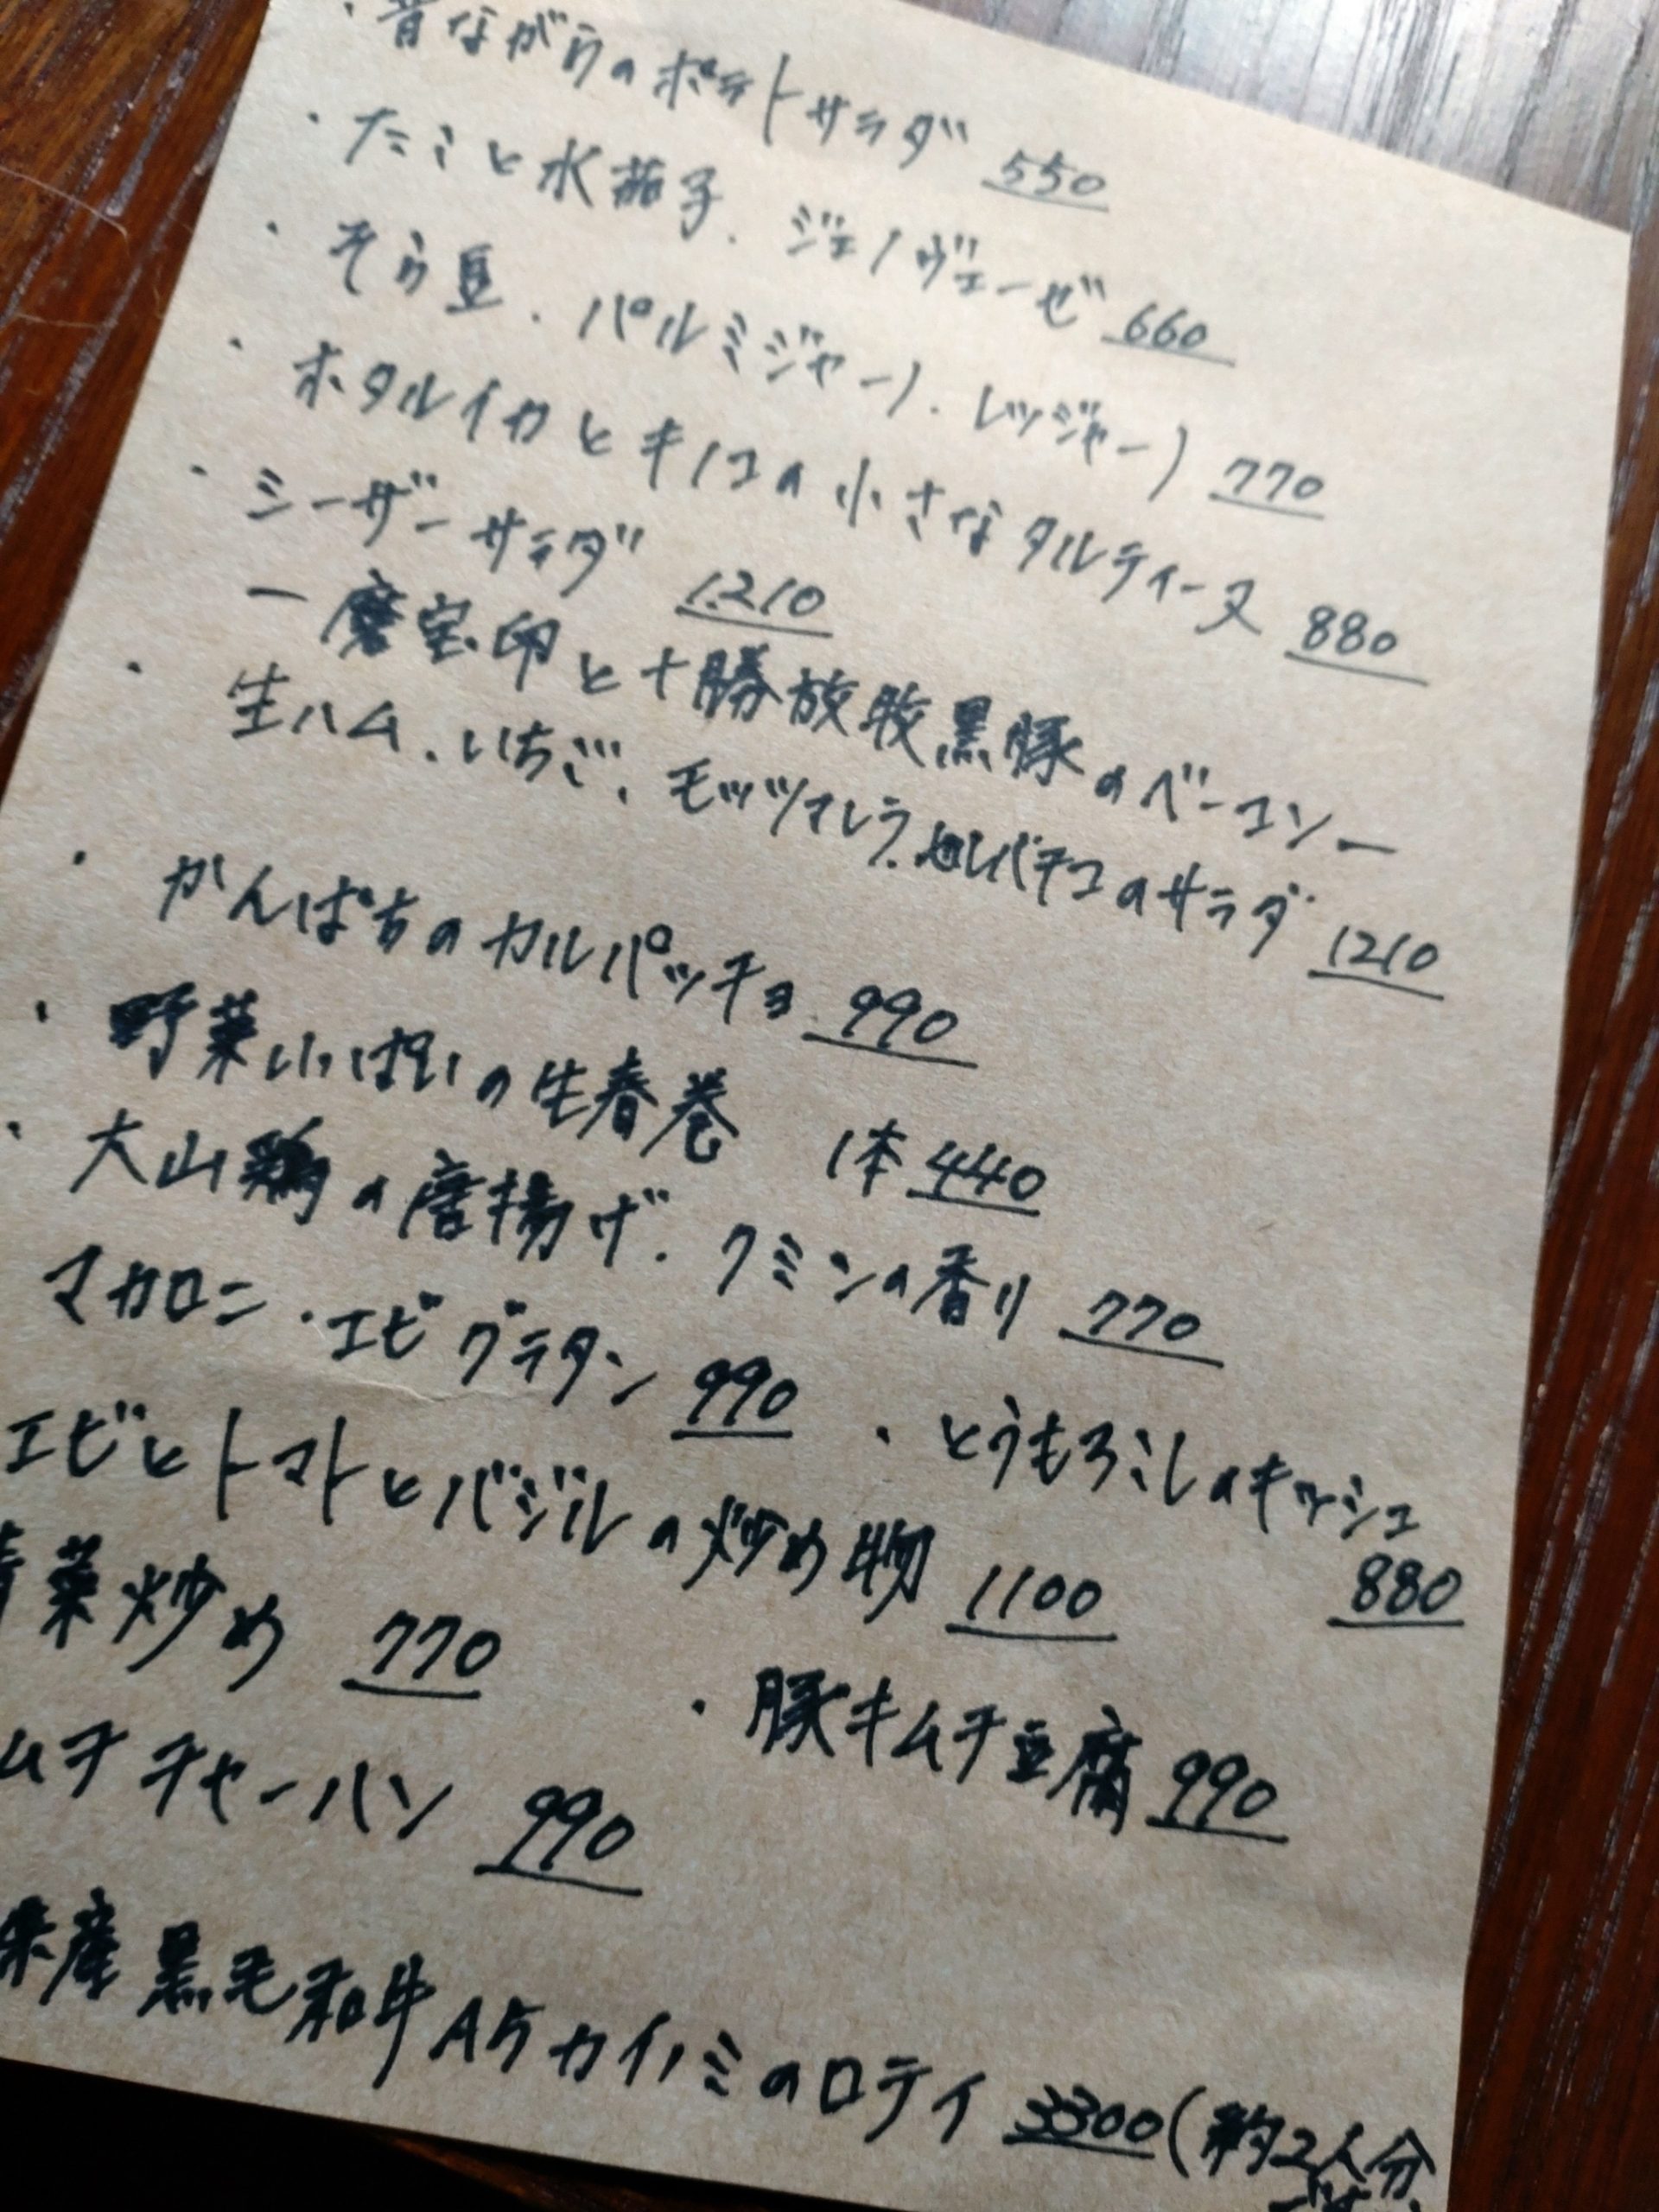 ・昔ながらのポテトサラダ 550
・たこと水茄子、ジェノヴェーゼ 660
・そら豆、パルミジャーノ・レッジャーノ 770
・ホタルイカとキノコの小さなタルティーヌ 880
・シーザーサラダ 1,210
ー磨宝卵と十勝放牧黒豚のベーコンー
・生ハム、いちご、モッツァレラ、セルバチコのサラダ 1210
・かんぱちのカルパッチョ 990
・野菜いっぱいの生春巻 1本 440
・大山鶏の唐揚げ、クミンの香り 770
マカロニ・エビグラタン 990 ・とうもろこしのキッシュ 880
エビとトマトとバジルの炒め物 1100
青菜炒め 770 ・豚キムチ豆腐 990
ムチチャーハン 990
県産黒毛和牛A5カイノミのロティ 3300(約2人分